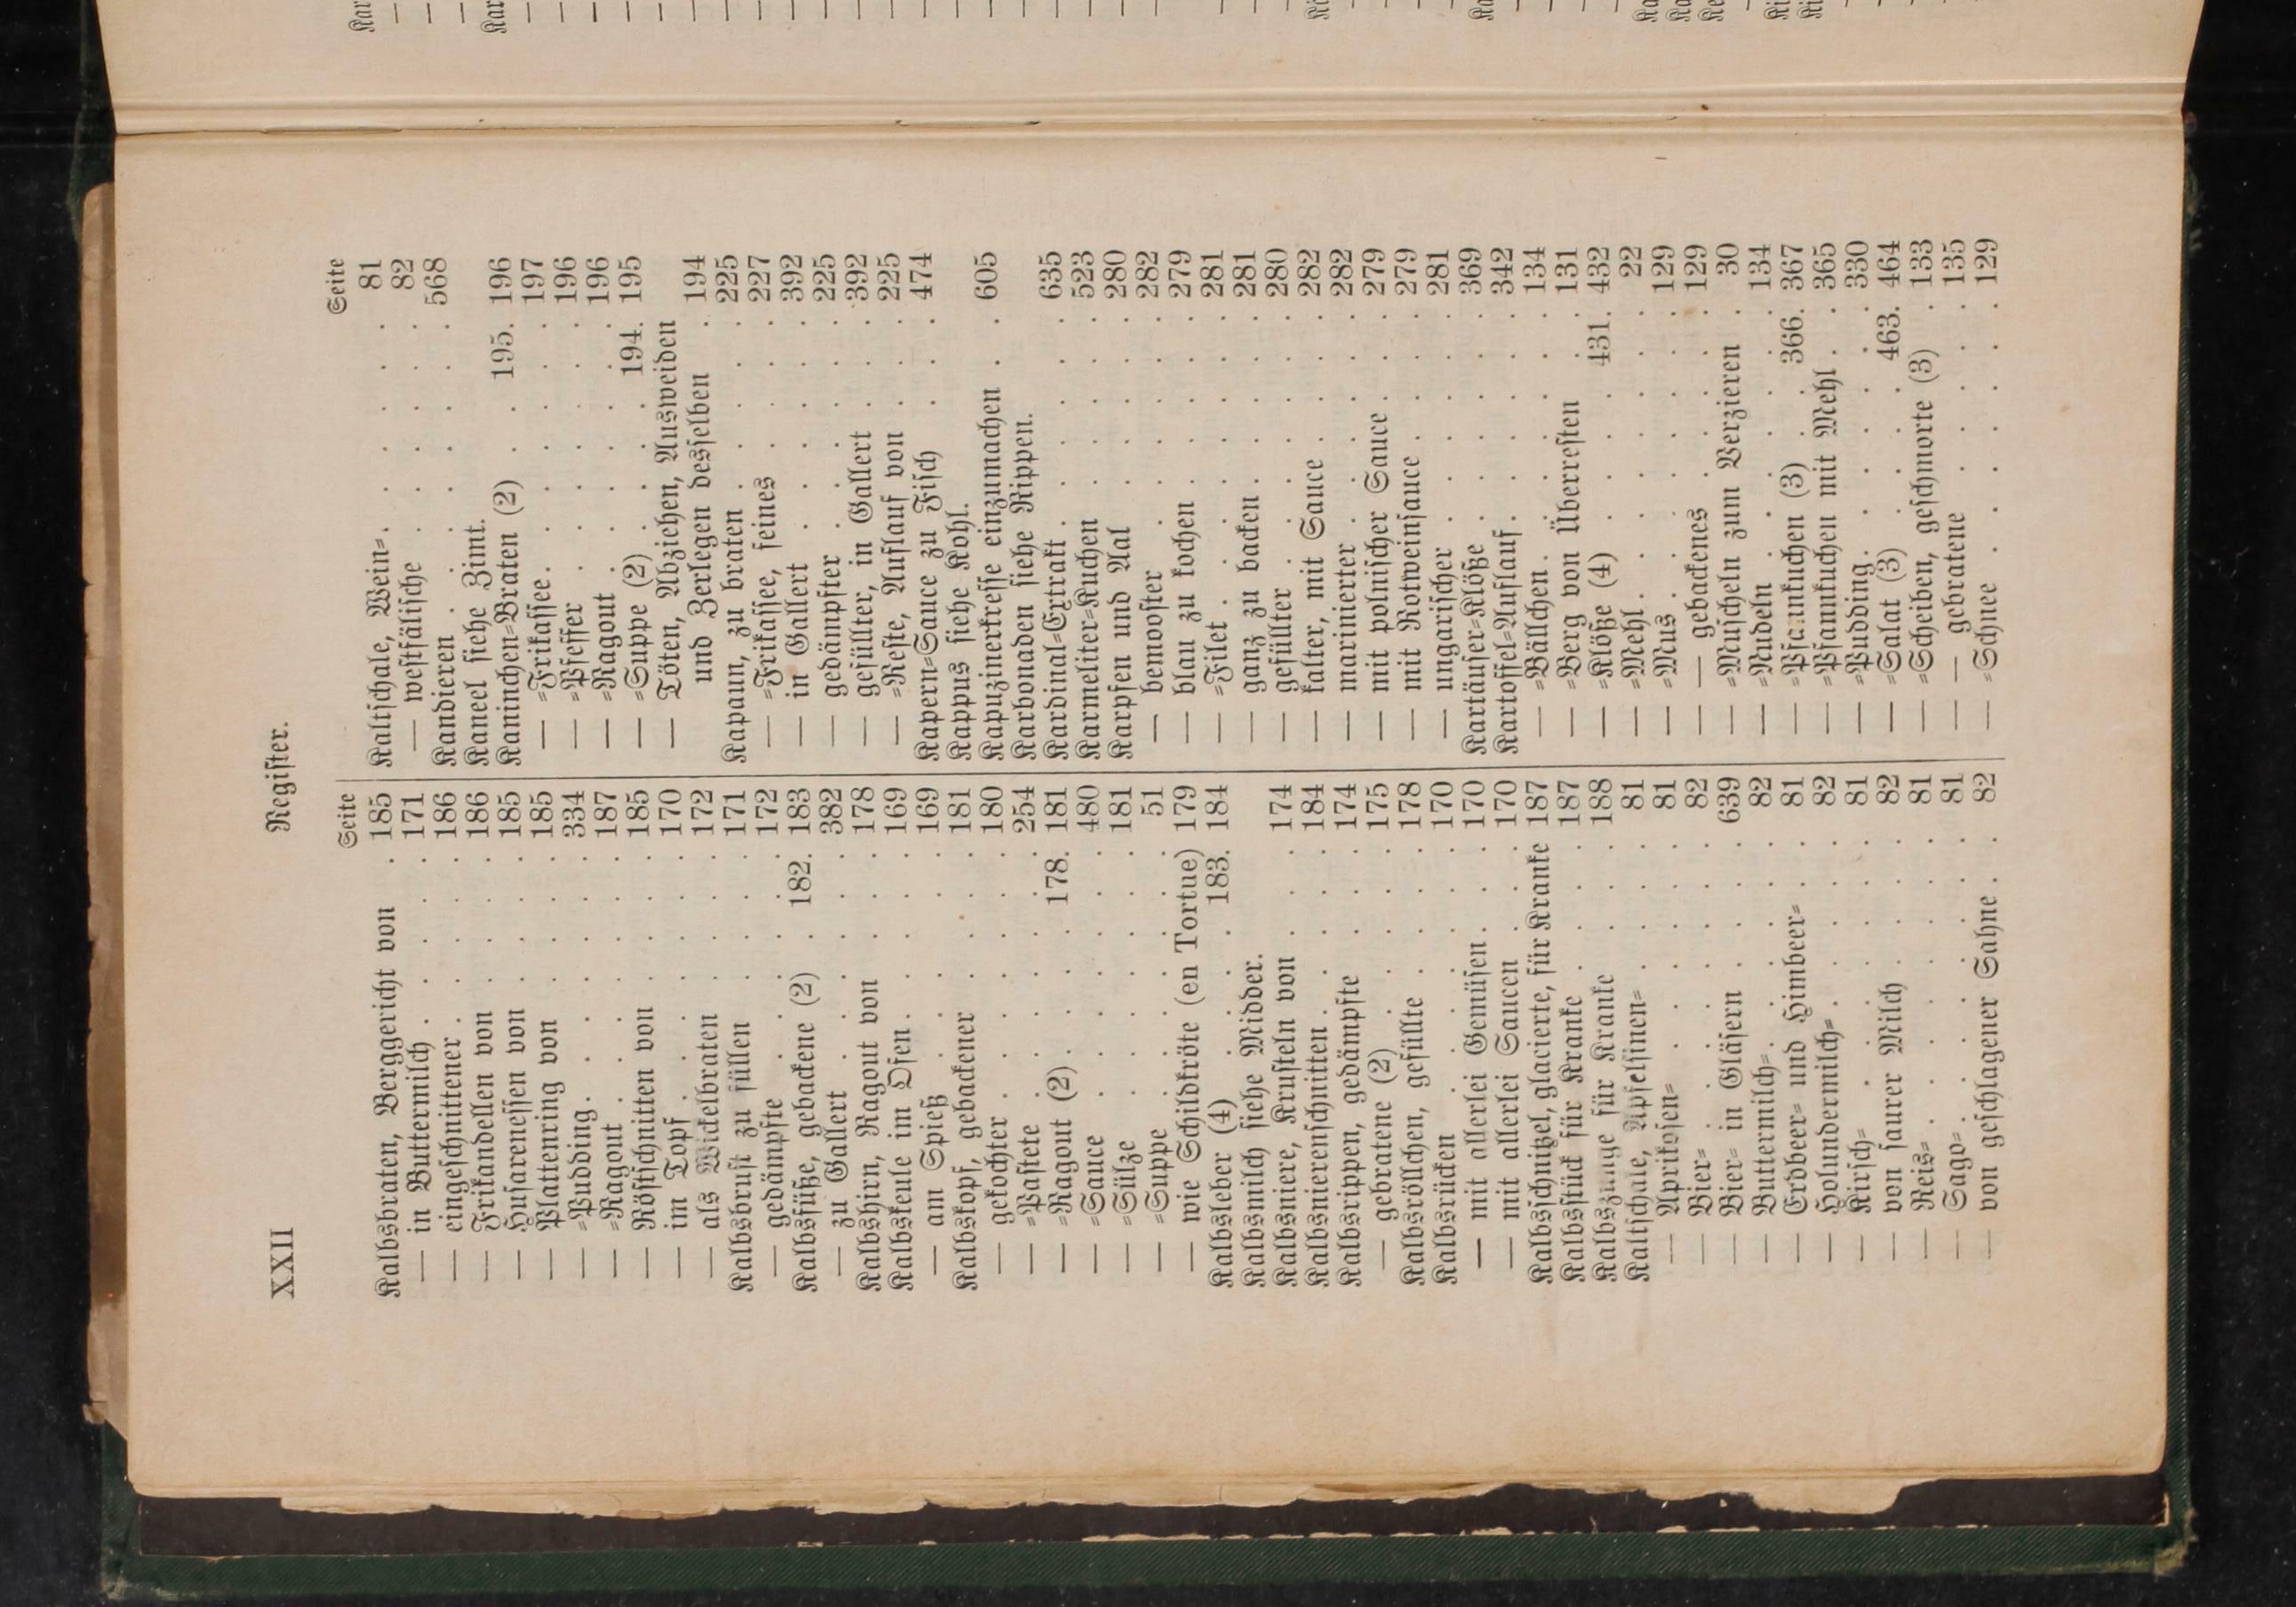 XXII
Register.
Seite
Kalbsbraten, Berggericht von . 185
— in Buttermilch . . . . . 171
— eingeschnittener . . . . . 186
— Frikandellen von . . . . 186
— Husarenessen von . . . . 185
— Plattenring von . . . . . 185
— =Pudding . . . . . . . 334
— =Ragout . . . . . . . 187
— Röstschnitten von . . . . 185
— im Topf . . . . . . . 170
— als Wickelbraten . . . . 172
Kalbsbrust zu füllen . . . . 171
— gedämpfte . . . . . . 172
Kalbsfüße, gebackene (2) . 182. 183
— zu Gallert . . . . . . 382
Kalbshirn, Ragout von . . . 178
Kalbskeule im Ofen . . . . . 169
— am Spieß . . . . . . 169
Kalbskopf, gebackener . . . . 181
— gekochter . . . . . . . 180
— =Pastete . . . . . . . 254
— =Ragout (2) . . . . 178. 181
— =Sauce . . . . . . . 480
— =Sülze . . . . . . . 181
— =Suppe . . . . . . . 51
— wie Schildkröte (en Tortue) 179
Kalbsleber (4) . . . . 183. 184
Kalbsmilch siehe Midder.
Kalbsniere, Krusteln von . . . 174
Kalbsnierenschnitten . . . . . 184
Kalbsrippen, gedämpfte . . . 174
— gebratene (2) . . . . . 175
Kalbsröllchen, gefüllte . . . . 178
Kalbsrücken . . . . . . . 170
— mit allerlei Gemüsen . . . 170
— mit allerlei Saucen . . . 170
Kalbsschnitzel, glacierte, für Kranke 187
Kalbsstück für Kranke . . . . 187
Kalbszunge für Kranke . . . . 188
Kaltschale, Apfelsinen= . . . . 81
— Aprikosen= . . . . . . 81
— Bier= . . . . . . . . 82
— Bier= in Gläsern . . . . 639
— Buttermilch= . . . . . . 82
— Erdbeer= und Himbeer= . . 81
— Holundermilch= . . . . . 82
— Kirsch= . . . . . . . 81
— von saurer Milch . . . . 82
— Reis= . . . . . . . . 81
— Sago= . . . . . . . . 81
— von geschlagener Sahne . . 82
Seite
Kaltschale, Wein= . . . . . 81
— westfälische . . . . . . 82
Kandieren . . . . . . . . 568
Kaneel siehe Zimt.
Kaninchen=Braten (2) . . 195. 196
— =Frikassee . . . . . . . 197
— =Pfeffer . . . . . . . 196
— =Ragout . . . . . . . 196
— =Suppe (2) . . . . 194. 195
— Töten, Abziehen, Ausweiden
und Zerlegen desselben . . 194
Kapaun, zu braten . . . . . 225
— =Frikassee, feines . . . . 227
— in Gallert . . . . . . 392
— gedämpfter . . . . . . 225
— gefüllter, in Gallert . . . 392
— =Reste, Auflauf von . . . 225
Kapern=Sauce zu Fisch . . . 474
Kappus siehe Kohl.
Kapuzinerkresse einzumachen . . 605
Karbonaden siehe Rippen.
Kardinal=Extrakt . . . . . . 635
Karmeliter=Kuchen . . . . . 523
Karpfen und Aal . . . . . 280
— bemooster . . . . . . . 282
— blau zu kochen . . . . . 279
— =Filet . . . . . . . . 281
— ganz zu backen . . . . . 281
— gefüllter . . . . . . . 280
— kalter, mit Sauce . . . . 282
— marinierter . . . . . . 282
— mit polnischer Sauce . . . 279
— mit Rotweinsauce . . . . 279
— ungarischer . . . . . . 281
Kartäuser=Klöße . . . . . . 369
Kartoffel=Auflauf . . . . . . 342
— =Bällchen . . . . . . . 134
— =Berg von Überresten . . 131
— =Klöße (4) . . . . 431. 432
— =Mehl . . . . . . . . 22
— =Mus . . . . . . . . 129
— — gebackenes . . . . . 129
— =Muscheln zum Verzieren . 30
— =Nudeln . . . . . . . 134
— =Pfannkuchen (3) . . 366. 367
— =Pfannkuchen mit Mehl . . 365
— =Pudding . . . . . . . 330
— =Salat (3) . . . . 463. 464
— =Scheiben, geschmorte (3) . 133
— — gebratene . . . . . . 135
— =Schnee . . . . . . . 129